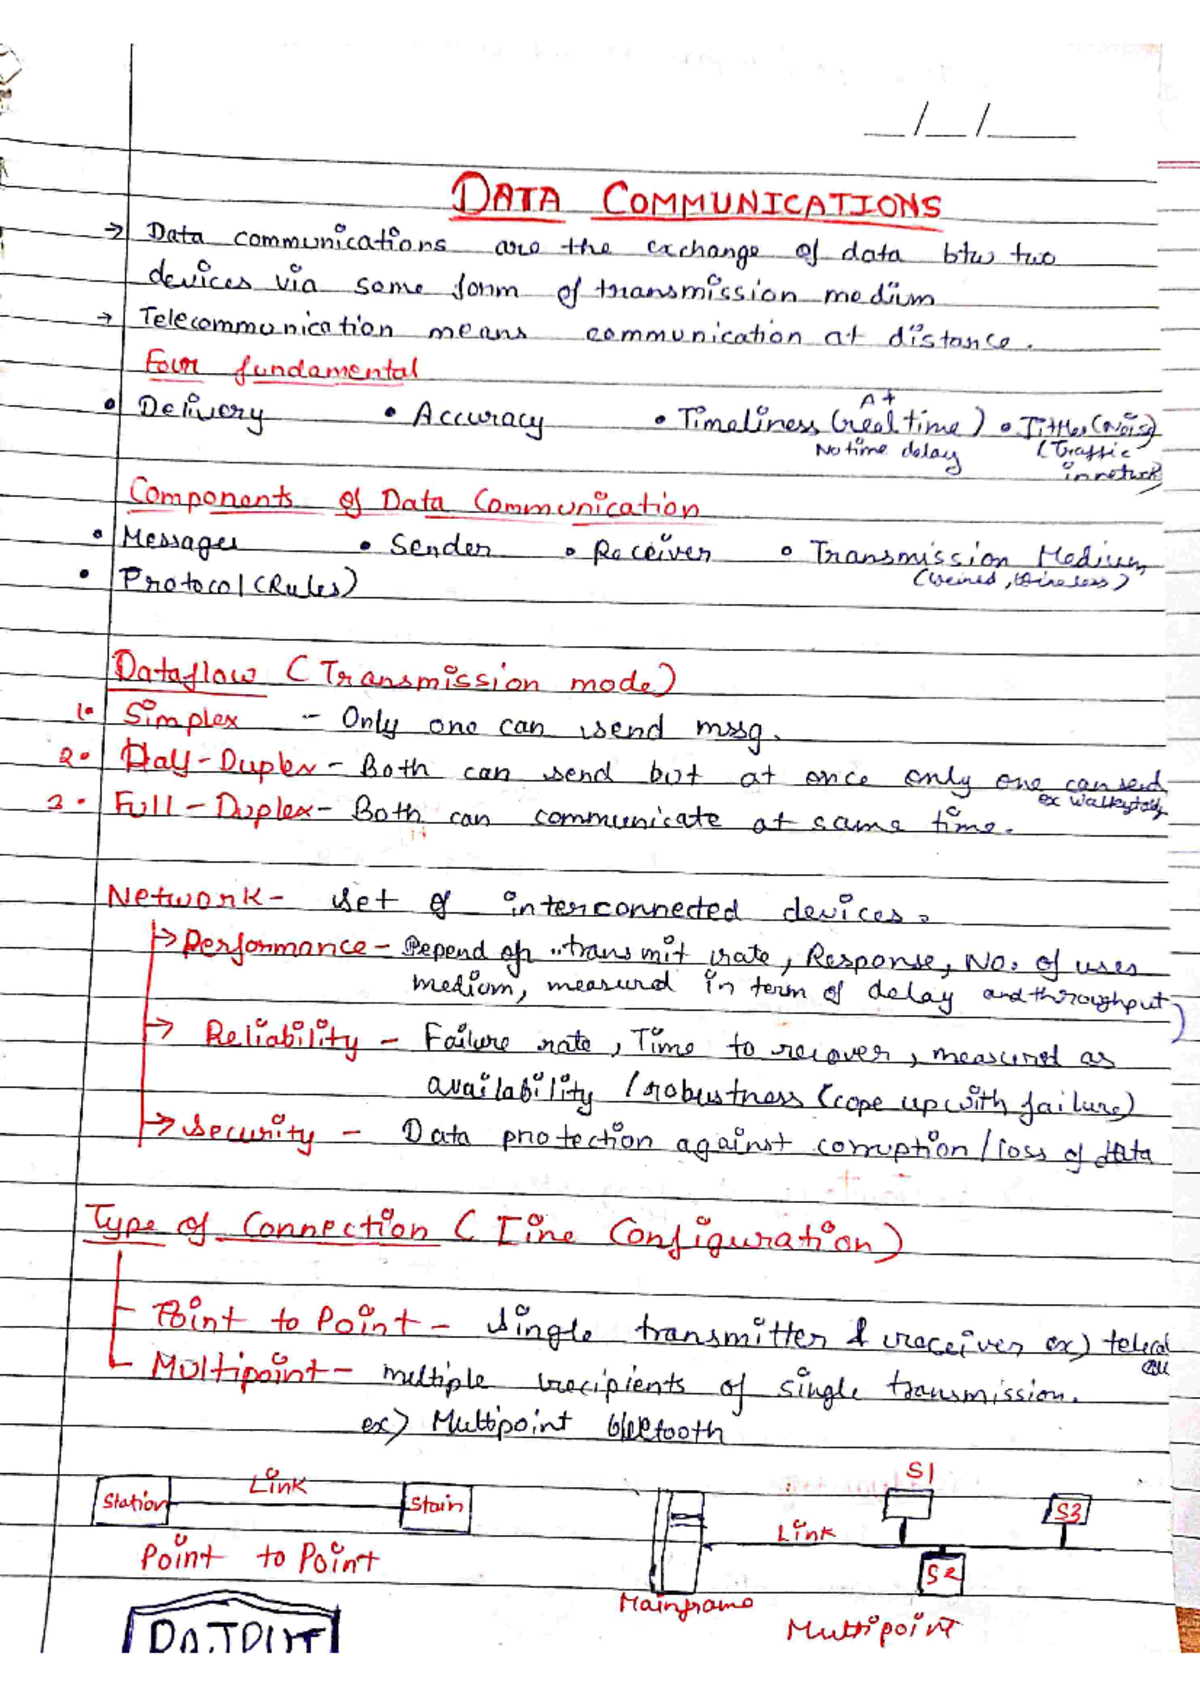 __/__/____
DATA COMMUNICATIONS
→ Data communications are the exchange of data btw two
devices via some form of transmission medium
→ Telecommunication means communication at distance.
Four fundamental
• Delivery • Accuracy • Timeliness (real time) • Jitter (Noise)
At
No time delay (Traffic
in network)
Components of Data Communication
• Messages • Sender • Receiver • Transmission Medium
• Protocol (Rules) (Weired, Wireless)
Dataflow (Transmission mode)
1. Simplex - Only one can send mssg.
2. Half-Duplex - Both can send but at once only one can send
ex
3. Full-Duplex - Both can communicate at same time.
Network - set of interconnected devices.
→ Performance - Depend on transmit rate, Response, No. of uses
medium, measured in term of delay and throughput)
→ Reliability - Failure rate, Time to recover, measured as
availability / robustness (cope up with failure)
→ Security - Data protection against corruption / loss of data
Type of Connection (Line Configuration)
Point to Point - single transmitter & receiver ex)
Multipoint - multiple recipients of single transmission.
ex) Multipoint bluetooth
Station Link Stain
Point to Point
Mainframe Link S1 S2 S3
Multipoint